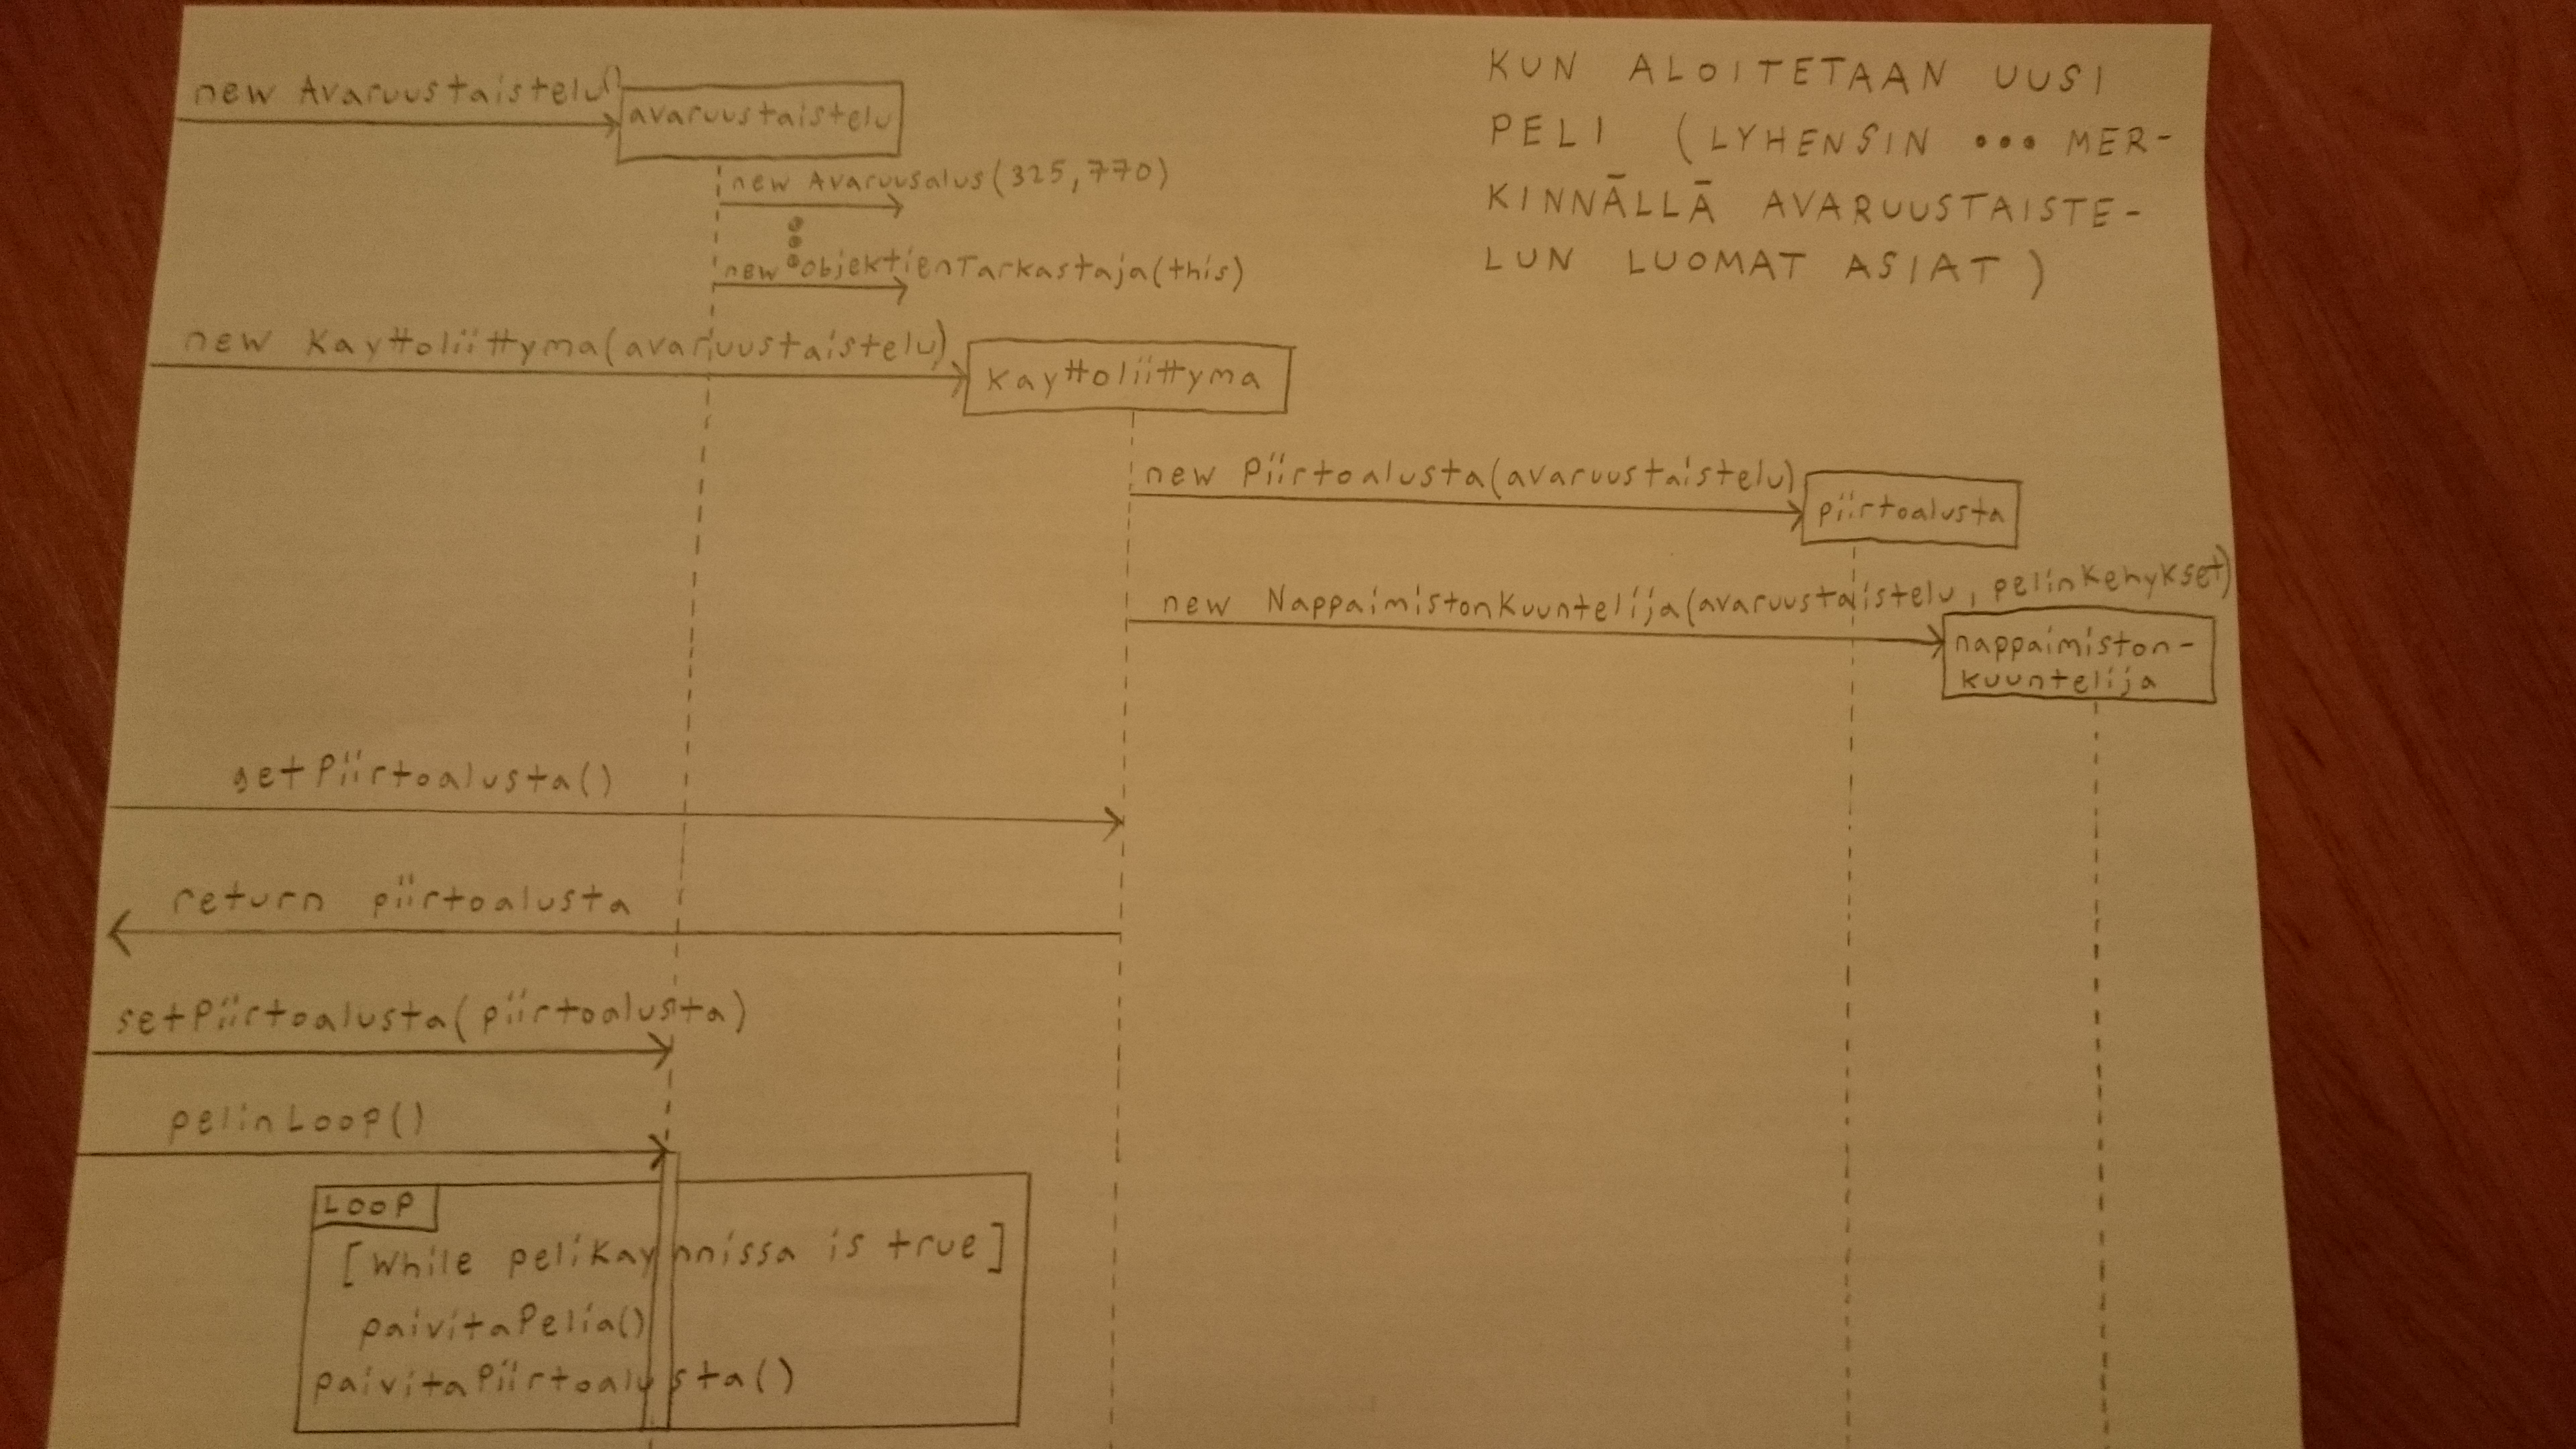 new Avaruustaistelu()
avaruustaistelu
KUN ALOITETAAN UUSI
PELI (LYHENSIN ... MER-
KINNÄLLÄ AVARUUSTAISTE-
LUN LUOMAT ASIAT)
new Avaruusalus(325,770)
new ObjektienTarkastaja(this)
new Kayttoliittyma(avaruustaistelu)
kayttoliittyma
new Piirtoalusta(avaruustaistelu)
piirtoalusta
new NappaimistonKuuntelija(avaruustaistelu, pelinKehykset)
nappaimiston-
kuuntelija
getPiirtoalusta()
return piirtoalusta
setPiirtoalusta(piirtoalusta)
pelinLoop()
LOOP
[While peliKaynnissa is true]
paivitaPelia()
paivitaPiirtoalusta()